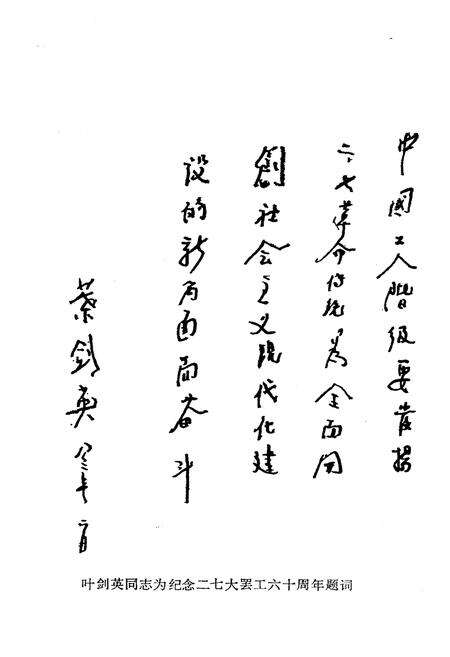 中國工人階级要发揚
二·七革命传统為全面開
創社会主义現代化建
设的新局面而奋斗
葉剑英 八三年二月
叶剑英同志为纪念二七大罢工六十周年题词